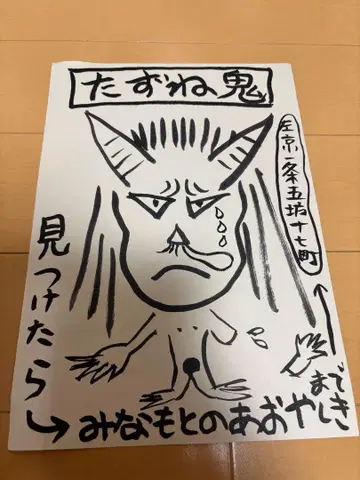 たずね鬼
左京一条五坊十七町
見つけたら
みなもとのあおやしき
まで